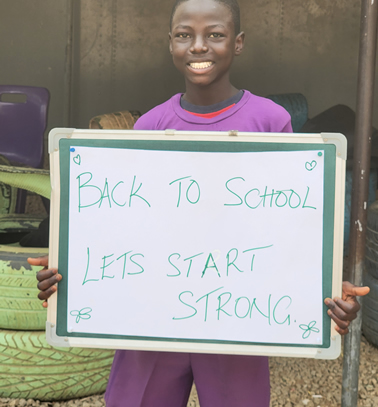 BACK TO SCHOOL
LETS START
STRONG.